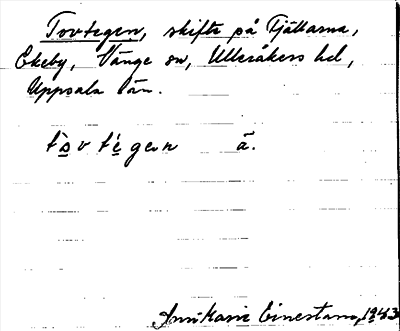 Tovtegen, skifte på Tjällarna,
Ekeby, Vänge sn, Ulleråkers hd,
Uppsala län.
tòvtégen ā.
AnnMarie Einerstam, 1943